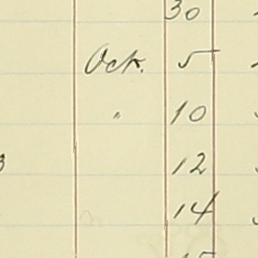 30
Oct. 5
" 10
12
14